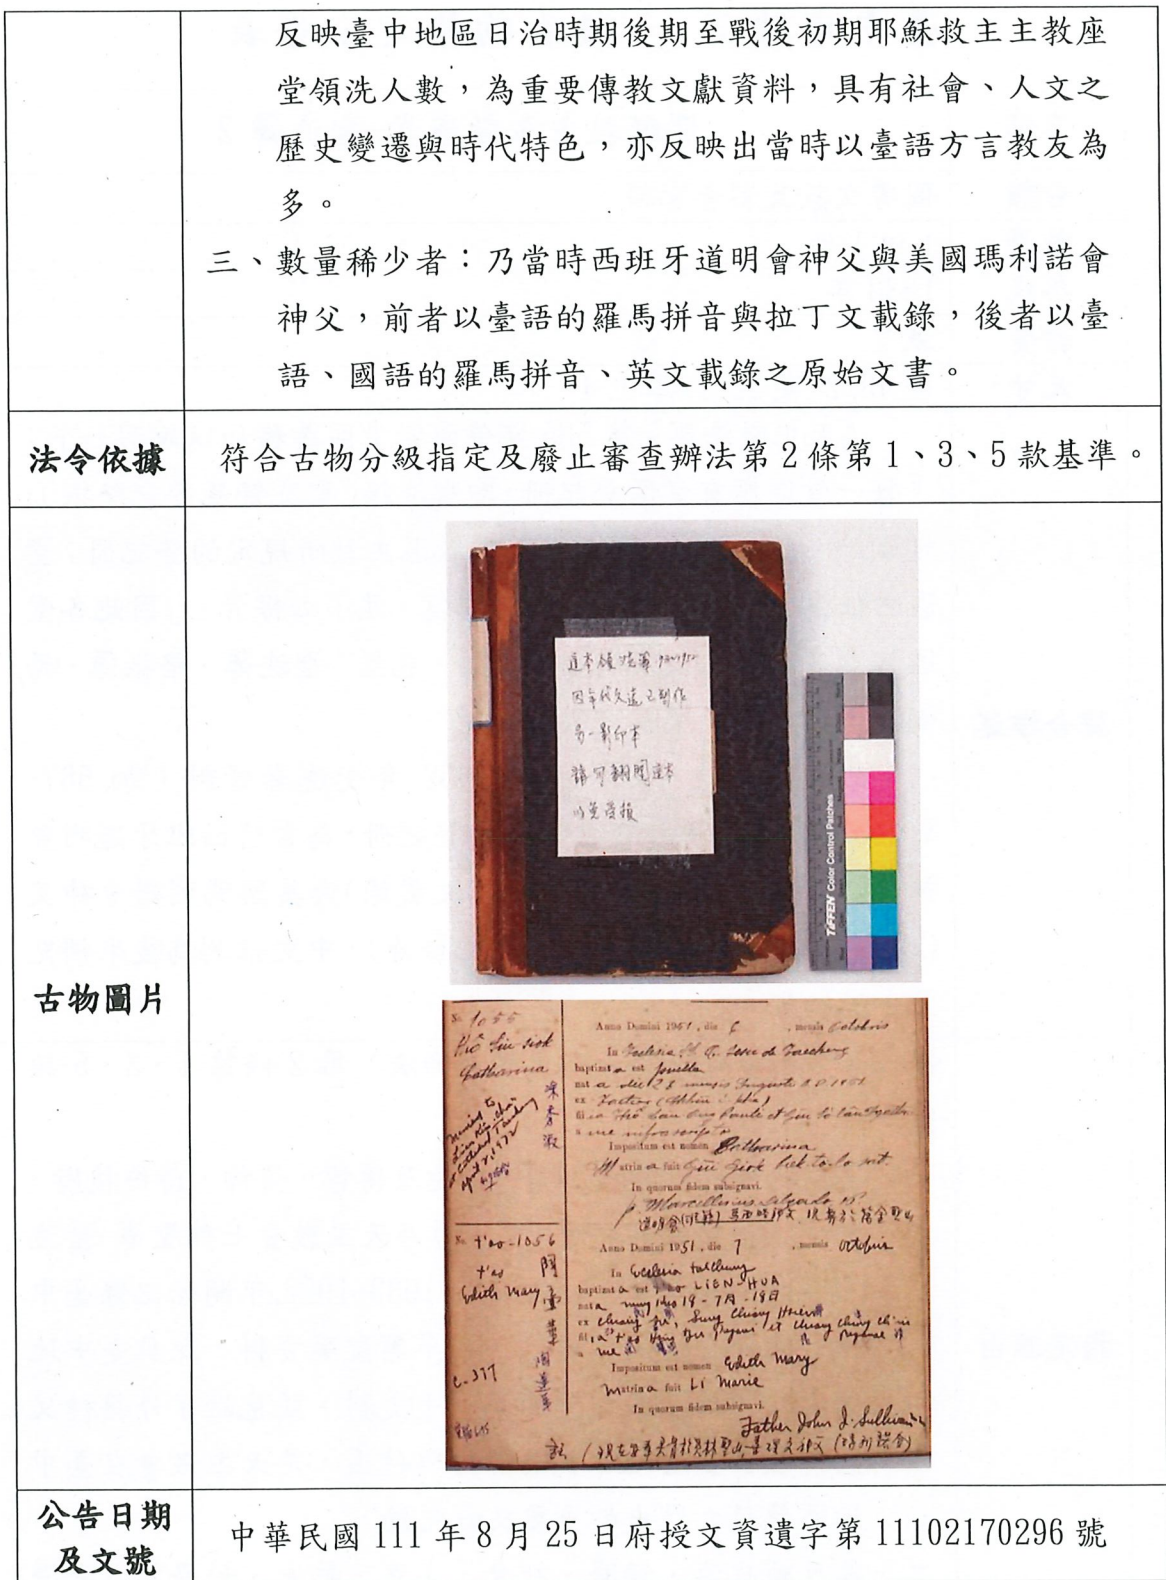 反映臺中地區日治時期後期至戰後初期耶穌救主主教座
堂領洗人數，為重要傳教文獻資料，具有社會、人文之
歷史變遷與時代特色，亦反映出當時以臺語方言教友為
多。
三、數量稀少者：乃當時西班牙道明會神父與美國瑪利諾會
神父，前者以臺語的羅馬拼音與拉丁文載錄，後者以臺
語、國語的羅馬拼音、英文載錄之原始文書。
法令依據
符合古物分級指定及廢止審查辦法第2條第1、3、5款基準。
古物圖片
這本領洗簿
因年代久遠已製作
另一影印本
請勿翻閱這本
以免受損
TIFFEN Color Control Patches
No 1055
Catharina
Married to
Cathedral
April 1972
Anno Domini 1951, die 6, mensis Octobris
In Ecclesia
baptizata est puella
nata die 23 mensis Augusti A.D. 1951
ex
filia
a me infrascripto
Impositum est nomen Catharina
Matrina fuit
In quorum fidem subsignavi.
No t'ao-1056
t'ao
Edith Mary
陶
蓮
華
c-377
Anno Domini 1951, die 7, mensis Octobris
In Ecclesia taichung
baptizata est t'ao LIEN-HUA
nata
ex
filia
a me
Impositum est nomen Edith Mary
Matrina fuit Li Marie
In quorum fidem subsignavi.
Father John J. Sullivan
公告日期
及文號
中華民國 111 年 8 月 25 日府授文資遺字第 11102170296 號